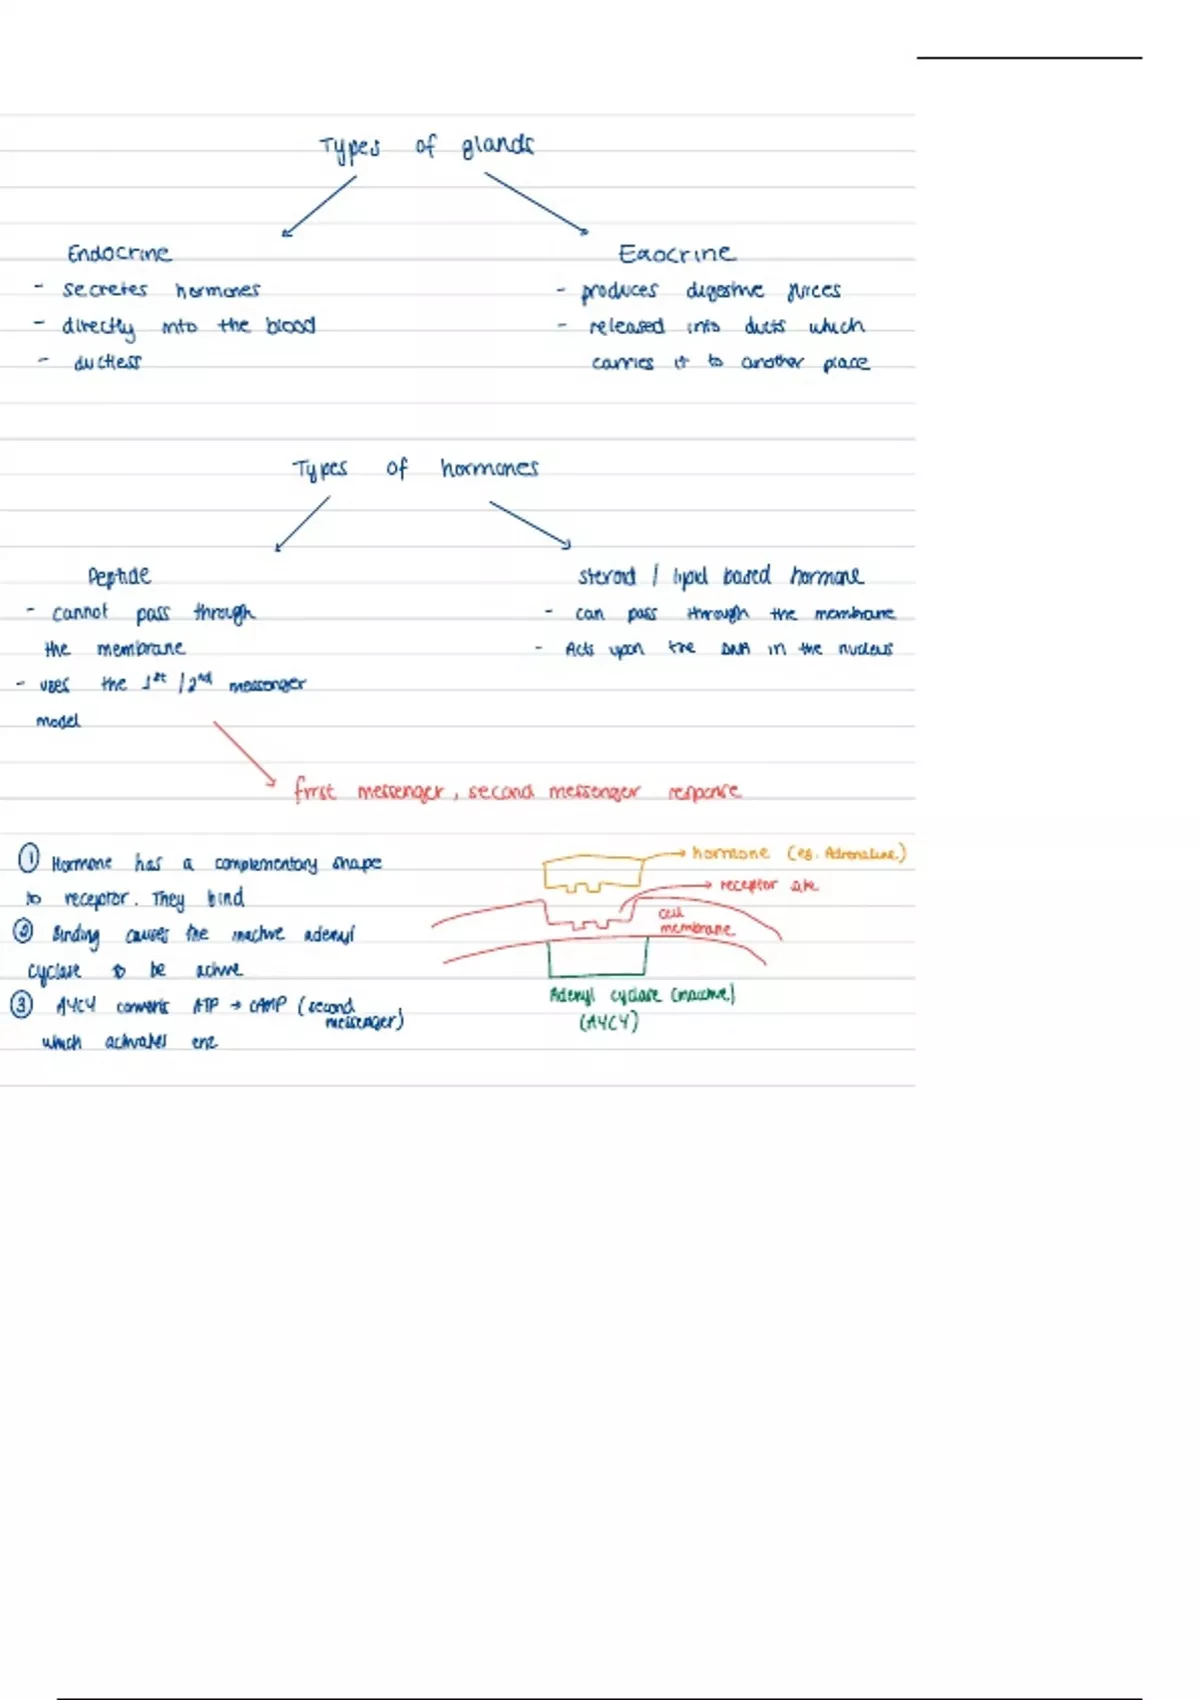 Types of glands
Endocrine
- secretes hormones
- directly into the blood
- ductless
Exocrine
- produces digestive juices
- released into ducts which
carries it to another place
Types of hormones
Peptide
- cannot pass through
the membrane
- uses the 1st / 2nd messenger
model
steroid / lipid based hormone
- can pass through the membrane
- Acts upon the DNA in the nucleus
first messenger, second messenger response
① Hormone has a complementary shape
to receptor. They bind
② Binding causes the inactive adenyl
cyclase to be active
③ AYCY converts ATP → cAMP (second
messenger)
which activates enz
hormone (eg. Adrenaline)
receptor site
cell
membrane
Adenyl cyclase (inactive)
(AYCY)